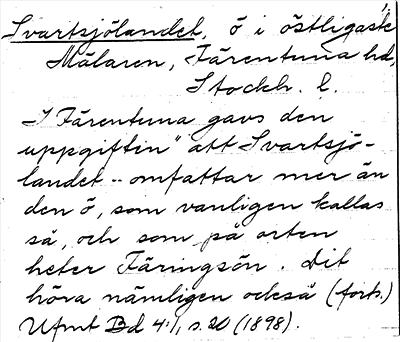 1.
Svartsjölandet, ö i östligaste
Mälaren, Färentuna hd,
Stockh. l.
"I Färentuna gavs den
uppgiften" att Svartsjö-
landet -- omfattar mer än
den ö, som vanligen kallas
så, och som på orten
heter Färingsön. Dit
höra nämligen också (forts.)
Ufmt Bd 4:1, s. 20 (1898).